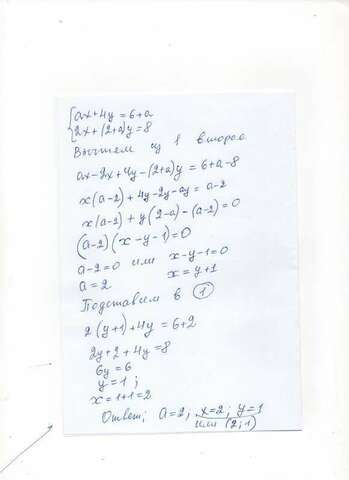 {ax+4y=6+a
{2x+(2+a)y=8
Вычтем из 1 второе
ax-2x+4y-(2+a)y=6+a-8
x(a-2)+4y-2y-ay=a-2
x(a-2)+y(2-a)-(a-2)=0
(a-2)(x-y-1)=0
a-2=0 или x-y-1=0
a=2 x=y+1
Подставим в ①
2(y+1)+4y=6+2
2y+2+4y=8
6y=6
y=1;
x=1+1=2
Ответ; a=2; x=2; y=1
или (2;1)